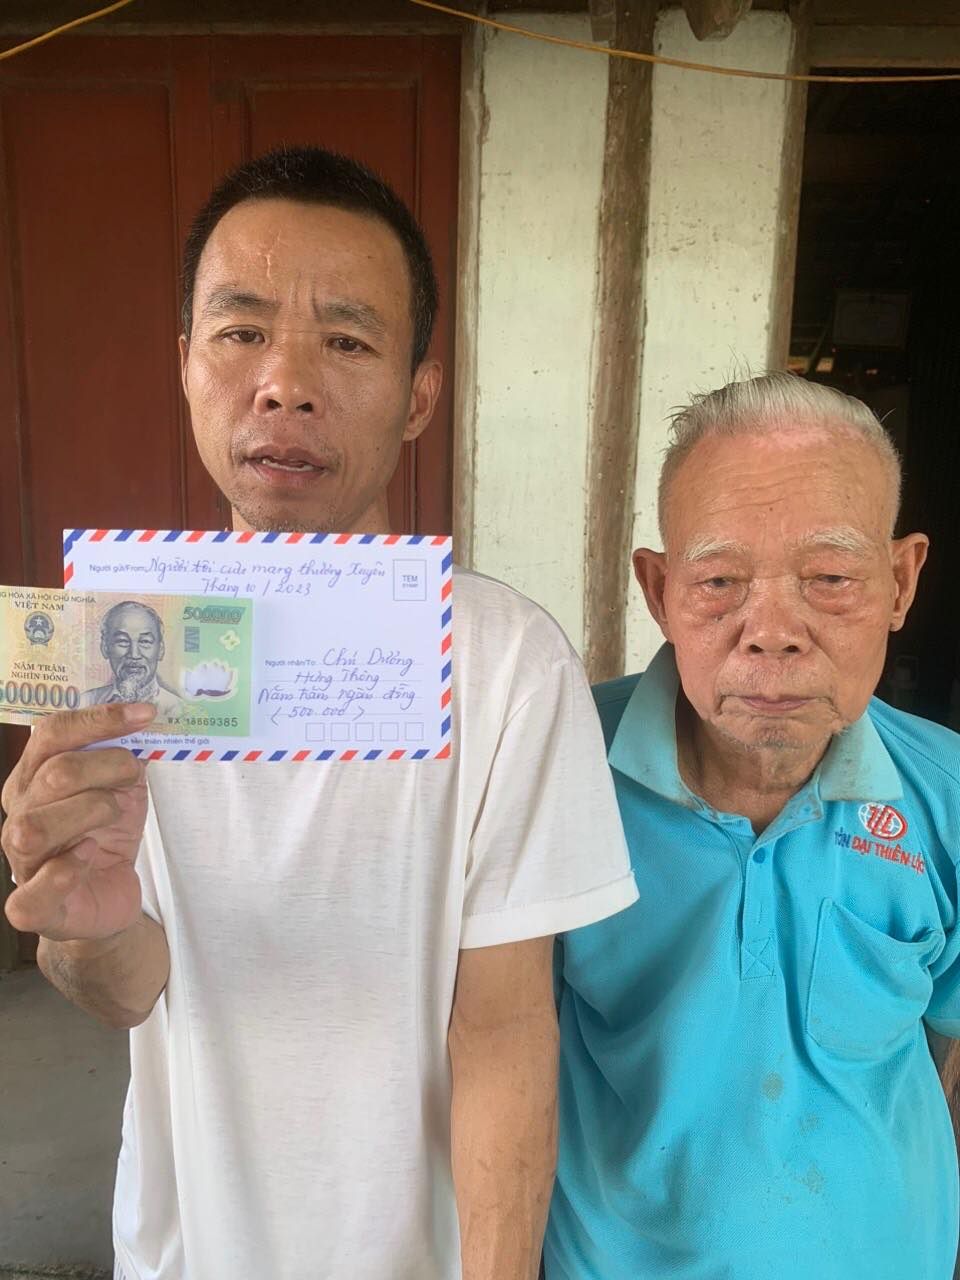 Người gửi/From: Người tôi cưu mang thường xuyên
Tháng 10/2023
TEM
STAMP
NG HÒA XÃ HỘI CHỦ NGHĨA
VIỆT NAM
500000
NĂM TRĂM
NGHÌN ĐỒNG
500000
WX 18669385
Người nhận/To: Chú Dưỡng
Hưng Thông
Năm trăm ngàn đồng
(500.000)
Di sản thiên nhiên thế giới
TÔN ĐẠI THIÊN LỘC